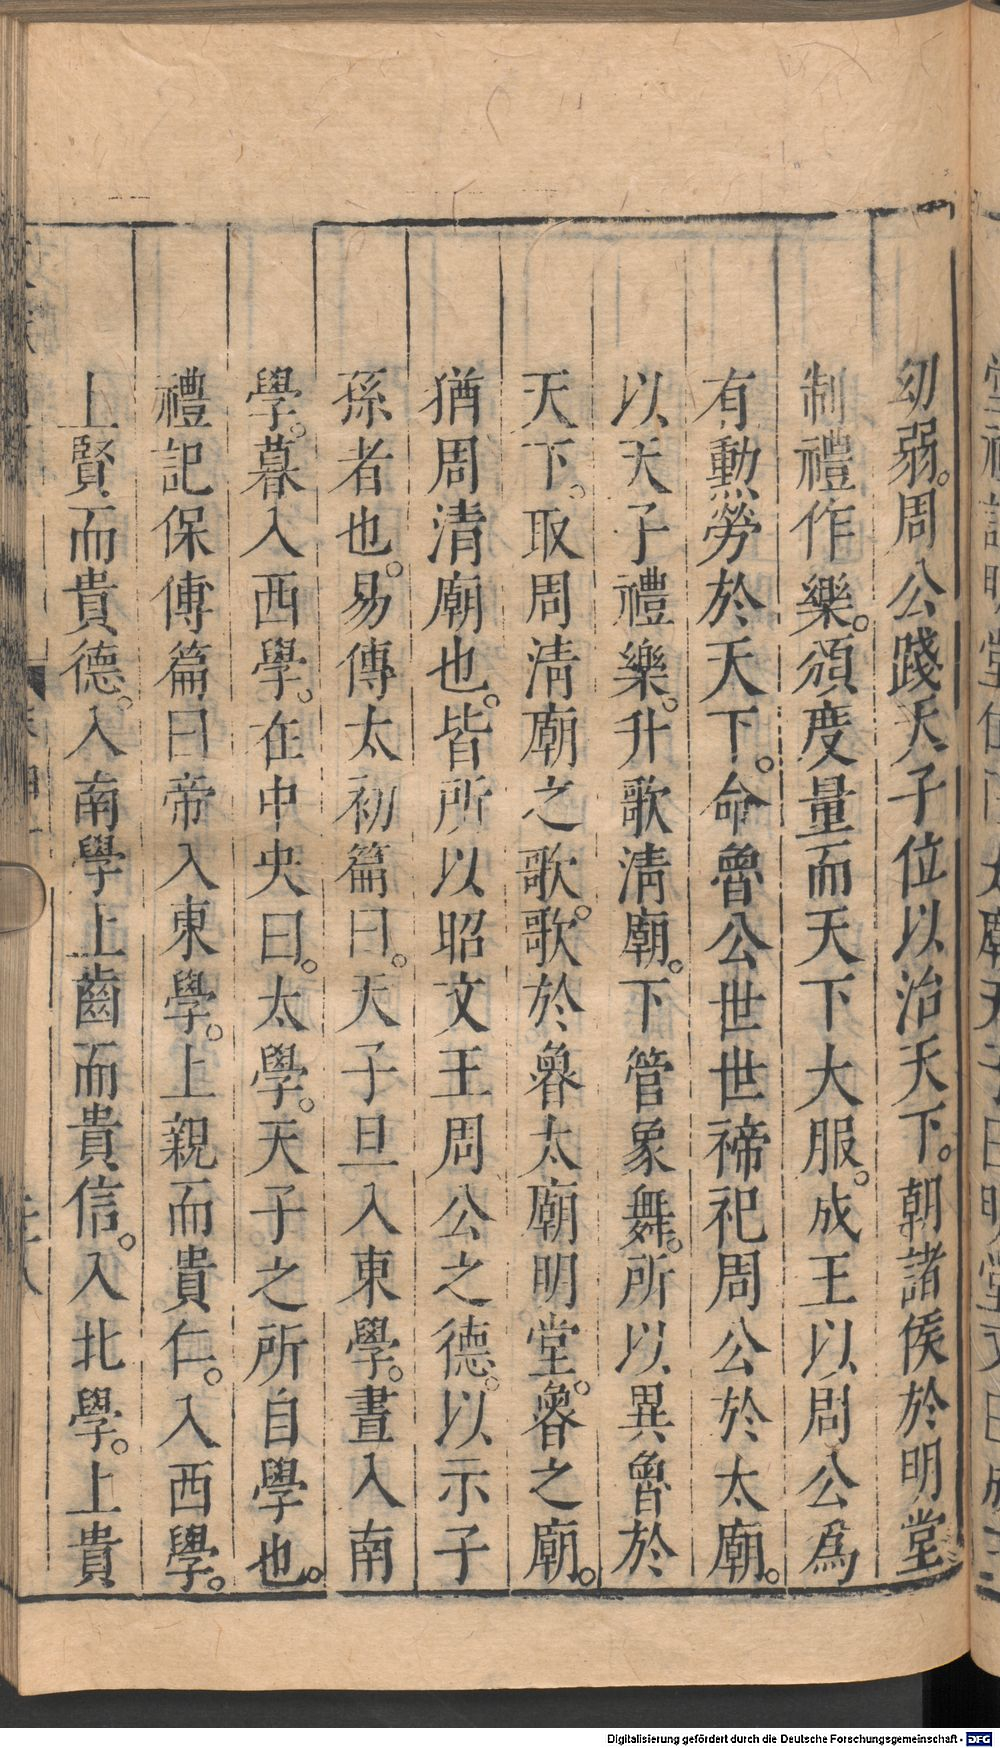 幼弱。周公踐天子位以治天下。朝諸侯於明堂
制禮作樂。頒度量而天下大服。成王以周公為
有勳勞於天下。命魯公世世禘祀周公於太廟。
以天子禮樂。升歌清廟。下管象舞。所以異魯於
天下。取周清廟之歌。歌於魯太廟明堂。魯之廟。
猶周清廟也。皆所以昭文王周公之德。以示子
孫者也。易傳太初篇曰。天子旦入東學。晝入南
學。暮入西學。在中央曰。太學。天子之所自學也。
禮記保傅篇曰帝入東學。上親而貴仁。入西學。
上賢而貴德。入南學上齒而貴信。入北學。上貴
Digitalisierung gefördert durch die Deutsche Forschungsgemeinschaft - DFG